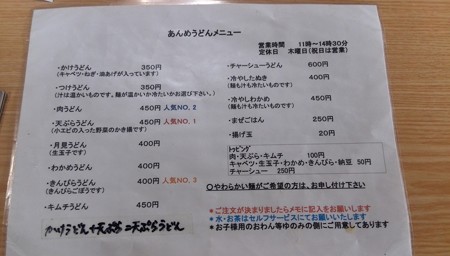 あんめうどんメニュー
営業時間　11時～14時30分
定休日　木曜日(祝日は営業)
・かけうどん　350円
(キャベツ・ねぎ・油あげが入っています)
・つけうどん　350円
(汁は温かいものです。麺が温かいか冷たいかお選び下さい。)
・肉うどん　450円 人気NO.2
・天ぷらうどん　450円 人気NO.1
(小エビの入った野菜のかき揚です)
・月見うどん　400円
(生玉子です)
・わかめうどん　400円
・きんぴらうどん　400円 人気NO.3
(きんぴらごぼうです)
・キムチうどん　450円
かけうどん+天ぷら=天ぷらうどん
・チャーシューうどん　600円
・冷やしたぬき　400円
(麺も汁も冷たいものです)
・冷やしわかめ　450円
(麺も汁も冷たいものです)
・まぜごはん　250円
・揚げ玉　20円
トッピング
肉・天ぷら・キムチ　100円
キャベツ・生玉子・わかめ・きんぴら・納豆 50円
チャーシュー　250円
○やわらかい麺がご希望の方は、お申し付け下さい
*ご注文が決まりましたらメモに記入をお願いします
*水・お茶はセルフサービスにてお願いいたします
*お子様用のおわん等ゆのみの側にご用意してあります